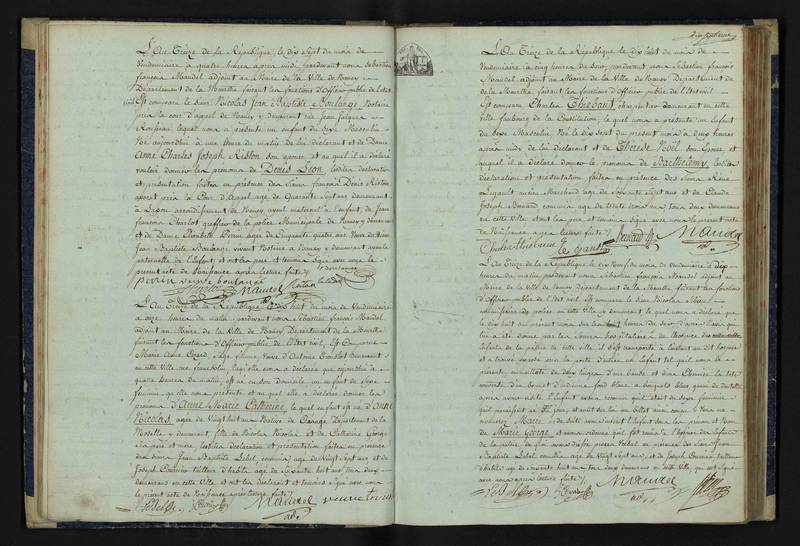 L'An Treize de la République, le dix Sept du mois de
Vendemiaire à quatre heures après midi, pardevant nous Sébastien
françois Mandel adjoint au Maire de la Ville de Nancy
Département de la Meurthe faisant les fonctions d'Officier public de l'état Civil
Est comparu le Sieur Nicolas Jean Baptiste Boulangé Notaire
près la cour d'appel de Nancy y demeurant rue Jean Jacques
Rousseau, lequel nous a présenté un enfant du Sexe Masculin
Né aujourd'hui à une heure du matin de lui déclarant et de Dame
Anne Charles Joseph Riston son épouse, et auquel il a déclaré
vouloir donner les prénoms de Denis Léon, lesdites déclaration
et présentation faites en présence des Sieurs françois Denis Riston
avocat près la Cour d'Appel, agé de Quarante Sept ans demeurant
à arrondissement de Nancy, ayeul maternel à l'enfant, de Jean
françois Charlot greffier de la police Municipale de Nancy y demeurant
et de Dame Elisabeth Perrin agée de Cinquante quatre ans, Veuve de Sieur
Jean Baptiste Boulangé, vivant Notaire à Nancy y demeurant ayeule
paternelle de l'Enfant et ont les père et témoins Signé avec nous le
présent acte de Naissance après lecture faite
perrin veuve boulangé
Mandel
adj.
L'An Treize de la République le dix huit du mois de Vendemiaire
à onze heures du matin, pardevant nous Sébastien françois Mandel
adjoint au Maire de la Ville de Nancy Département de la Meurthe
faisant les fonctions d'Officier public de l'état civil, Est Comparue
Marie Anne Sage femme, Veuve d'Antoine demeurant
en cette Ville rue laquelle nous a déclaré que aujourd'hui à
quatre heures du matin, est né en son domicile un enfant du Sexe
féminin, qu'elle nous présente et auquel elle a déclaré donner les
prénoms d'Anne Marie Catherine, lequel enfant est né d'Anne
Nicolas, agée de Vingt huit ans Native de Département de la
Moselle y demeurant fille de Nicolas Nicolas et de Catherine George
ses père et mère lesdites déclaration et présentation faites en présence
des Sieurs Jean Baptiste Lebel, commis, agé de Vingt Sept ans et de
Joseph tailleur d'habits agé de Soixante huit ans tous deux
demeurans en cette Ville et ont les déclarant et témoins Signé avec nous
le présent acte de Naissance après lecture faite
Lebel
Mandel veuve
adj.
dix septieme
L'An Treize de la République le dix huit du mois de
Vendemiaire à cinq heures du Soir, pardevant nous Sébastien françois
Mandel adjoint au Maire de la Ville de Nancy Département
de la Meurthe, faisant les fonctions d'Officier public de l'état civil
Est comparu Charles Thiébaut, charpentier demeurant en cette
Ville faubourg de la Constitution, lequel nous a présenté un Enfant
du Sexe Masculin, Né le dix sept du présent mois à deux heures
après midi de lui déclarant et de Thérèse Noël son Epouse et
auquel il a déclaré donner le prénom de Barthelemy, lesdites
déclaration et présentation faites en présence des Sieurs Réné
Legault Marchand agé de Soixante Sept ans et de Claude
Joseph Renard commis agé de trente trois ans tous deux demeurans
en cette Ville et ont les père et témoins Signé avec nous le présent acte
de Naissance après lecture faite
Charles Thiebaut
Le Gault
Renard
Mandel
adj.
L'An Treize de la République le dix Neuf du mois de Vendemiaire à dix
heures du matin pardevant nous Sébastien françois Mandel adjoint au
Maire de la Ville de Nancy Département de la Meurthe faisant les fonctions
d'Officier public de l'état civil Est comparu le Sieur Nicolas
commissaire de police en cette Ville y demeurant, lequel nous a déclaré que
le dix huit du présent mois sur les huit heures du Soir, d'après l'avis qui
lui a été donné par les Soeurs hospitalières de l'hospice des
Enfants de la patrie de cette Ville, il s'est transporté à l'instant audit hospice
et a trouvé exposé sur la porte d'icelui un Enfant tel qu'il nous le
présente, emmailloté de deux langes, d'une bande et d'une Chemise, la tête
couverte d'un bonnet d'indienne fond blanc à bouquets bleus garni de dentelle
après avoir visité l'Enfant avons reconnu qu'il était du Sexe féminin
qu'il paraissait agé de jours, et avait sur lui un billet ainsi conçu
nommée Marie
de Marie George et avons ordonné qu'il fut remis à l'hospice des Enfants
de la patrie, de quoi nous avons dressé procès verbal en présence des Sieurs Jean
Baptiste Lebel, commis, agé de Vingt Sept ans, et de Joseph tailleur
d'habits, agé de Soixante huit ans tous deux demeurans en cette Ville, qui ont Signé
avec nous après lecture faite
Mandel
adj.